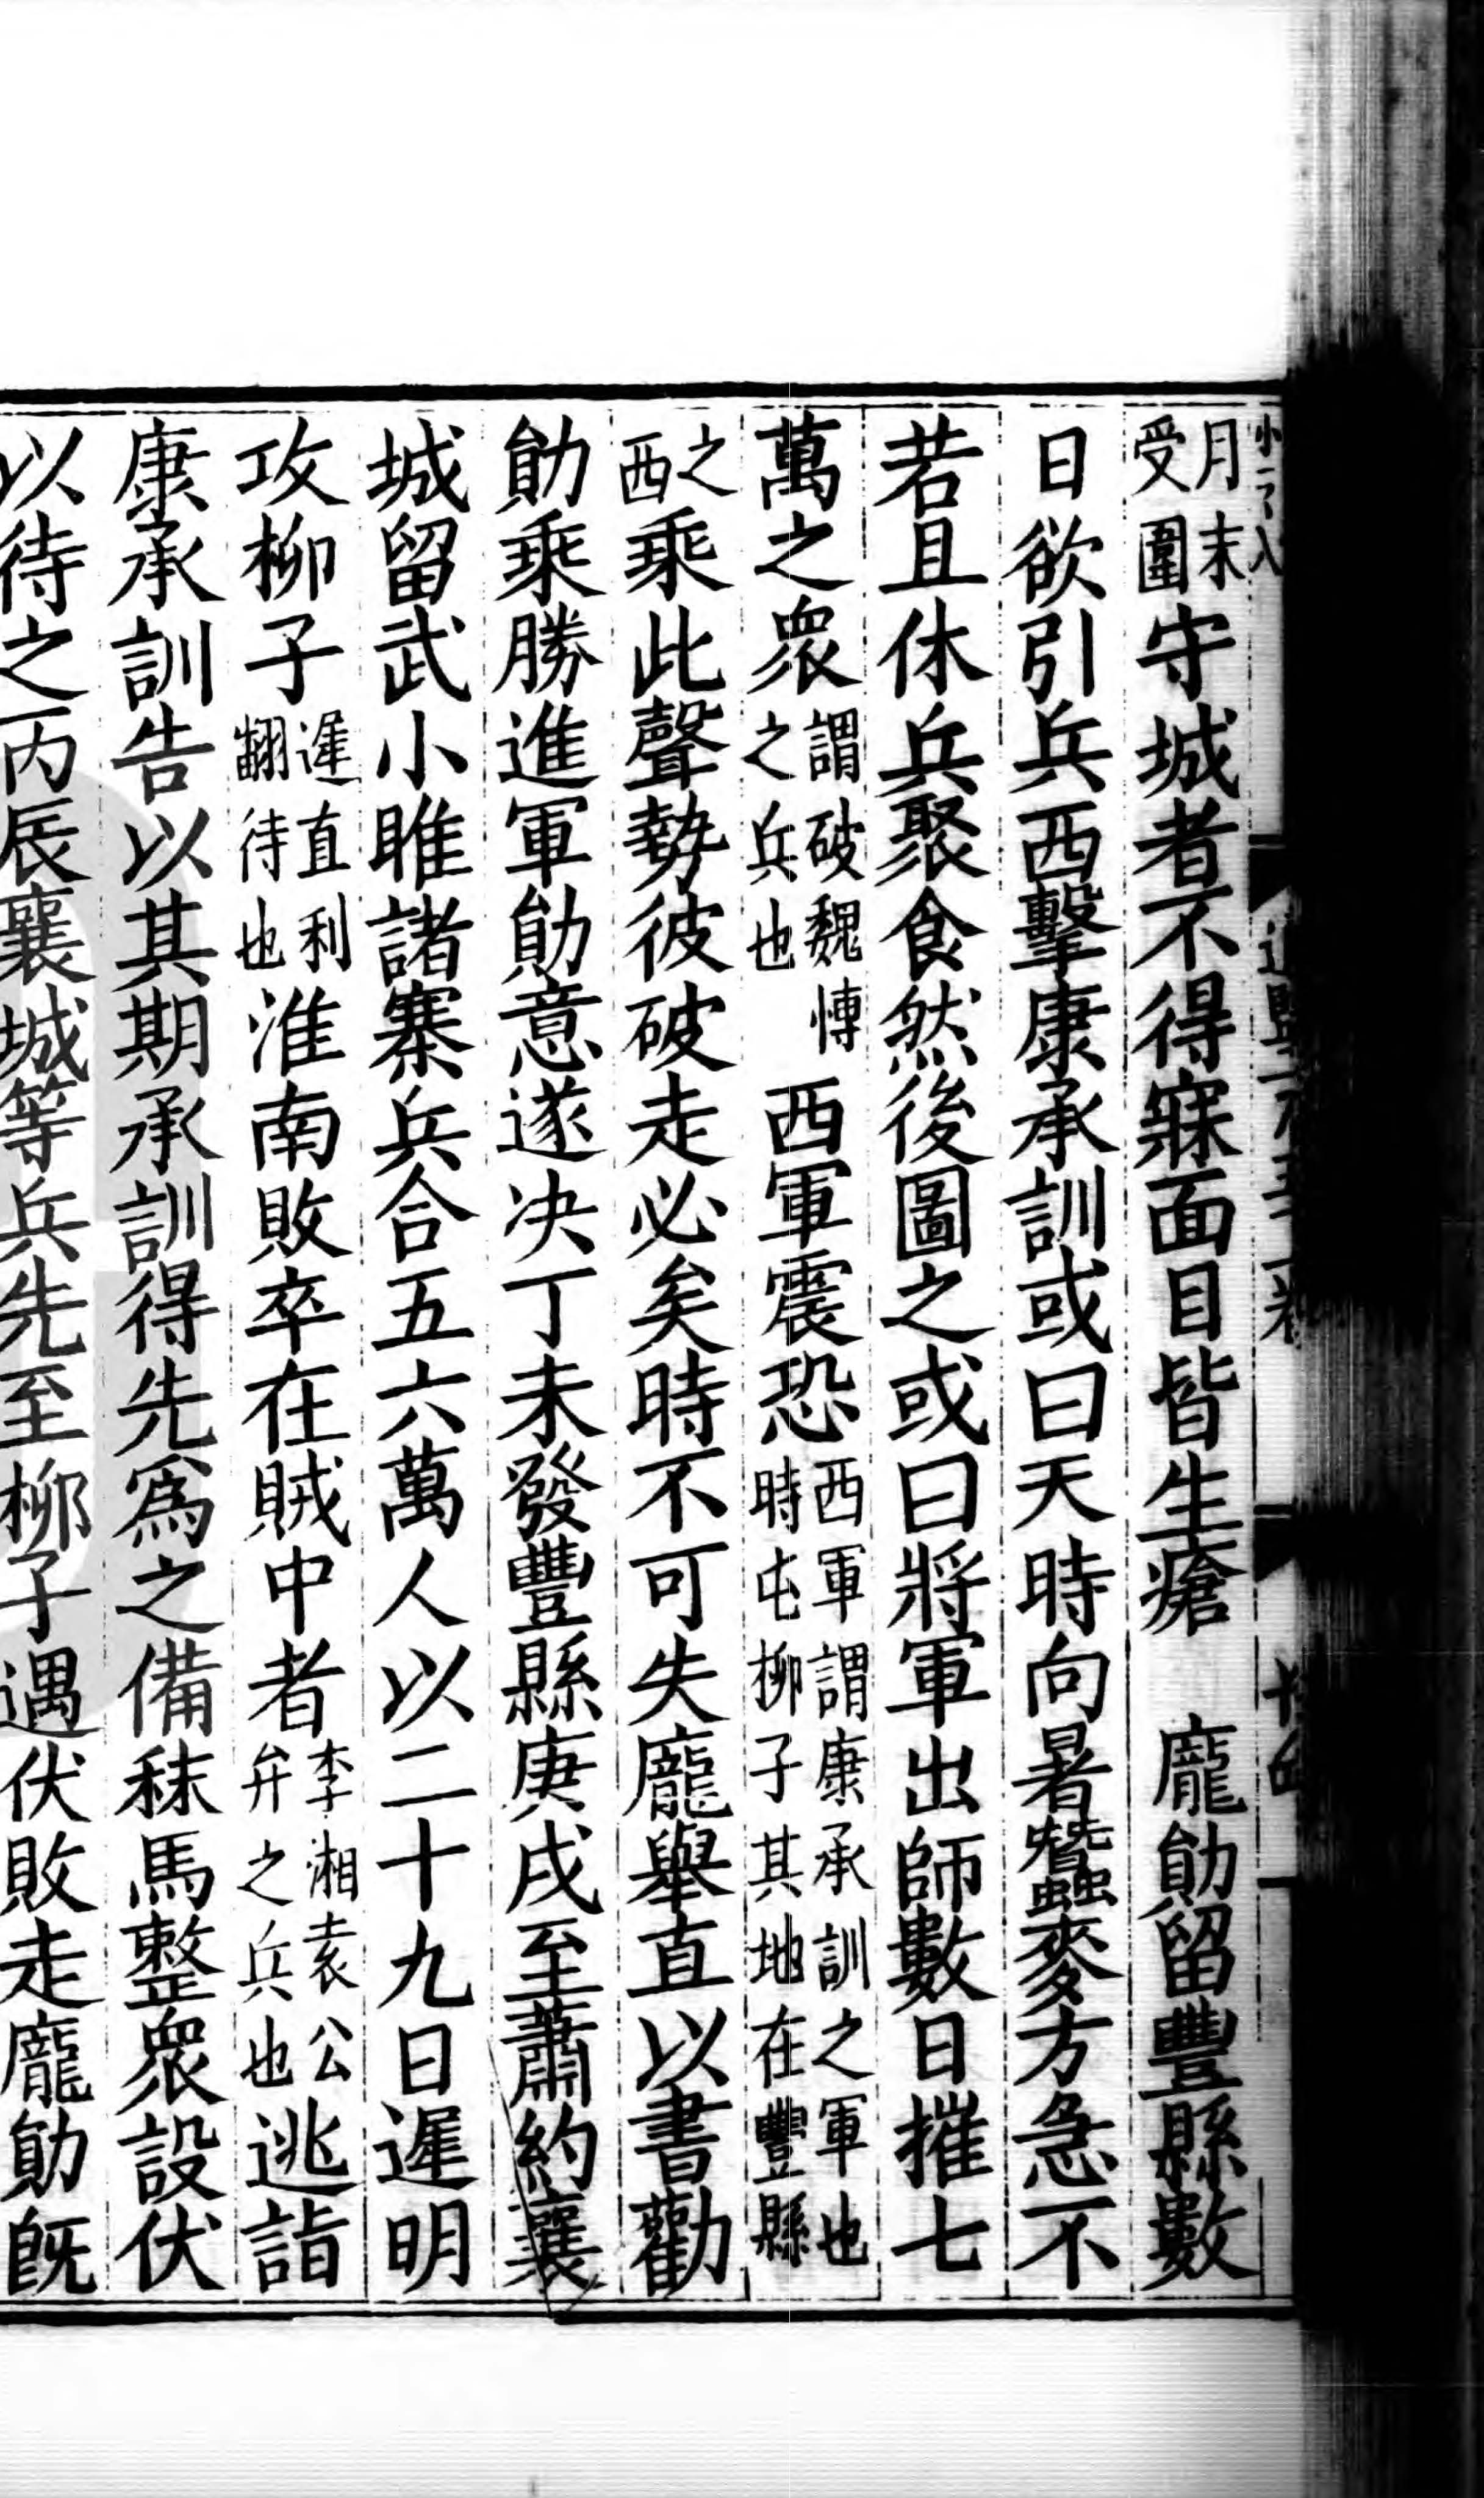 月末受圍守城者不得寐面目皆生瘡　龐勛留豐縣數
日欲引兵西擊康承訓或曰天時向暑蠶麥方急不
若且休兵聚食然後圖之或曰將軍出師數日摧七
萬之眾謂破魏博之兵也西軍震恐西軍謂康承訓之軍也時屯柳子其地在豐縣
之西乘此聲勢彼破走必矣時不可失龐舉直以書勸
勛乘勝進軍勛意遂決丁未發豐縣庚戌至蕭約襄
城留武小睢諸寨兵合五六萬人以二十九日遲明
攻柳子遲直利翻待也淮南敗卒在賊中者李湘袁公弁之兵也逃詣
康承訓告以其期承訓得先為之備秣馬整眾設伏
以待之丙辰襄城等兵先至柳子遇伏敗走龐勛既